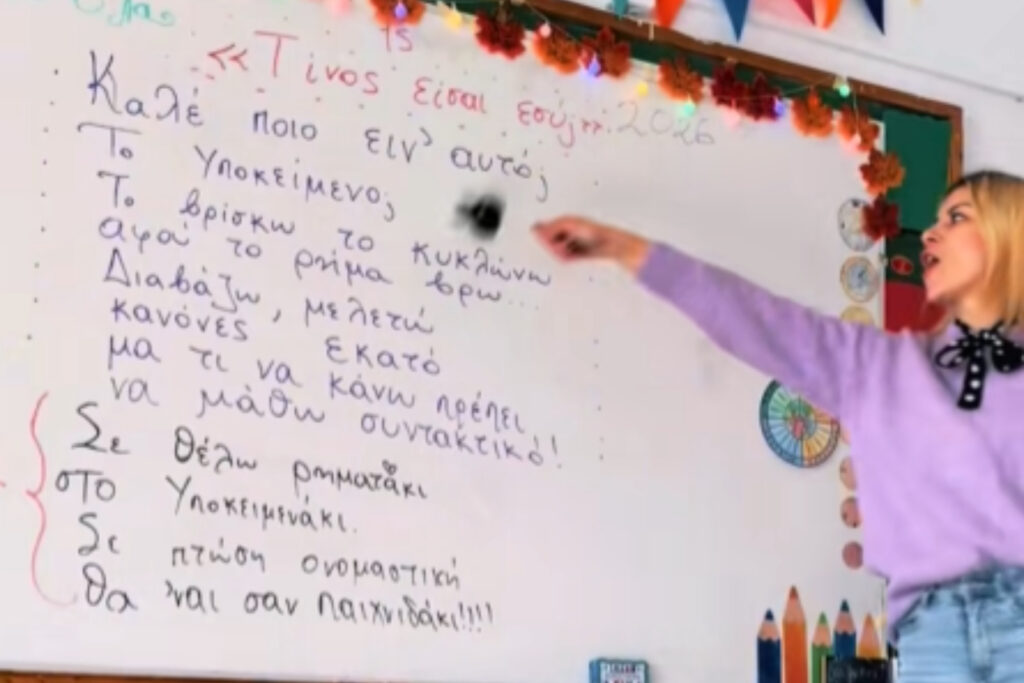 «Τίνος είσαι εσύ;».
2026
Καλέ ποιο ειν' αυτό;
Το Υποκείμενο;
Το βρίσκω το κυκλώνω
αφού το ρήμα βρω...
Διαβάζω, μελετώ
κανόνες εκατό
μα τι να κάνω πρέπει
να μάθω συντακτικό!!
Σε θέλω ρηματάκι
στο Υποκειμενάκι.
Σε πτώση ονομαστική
θα 'ναι σαν παιχνιδάκι!!!!